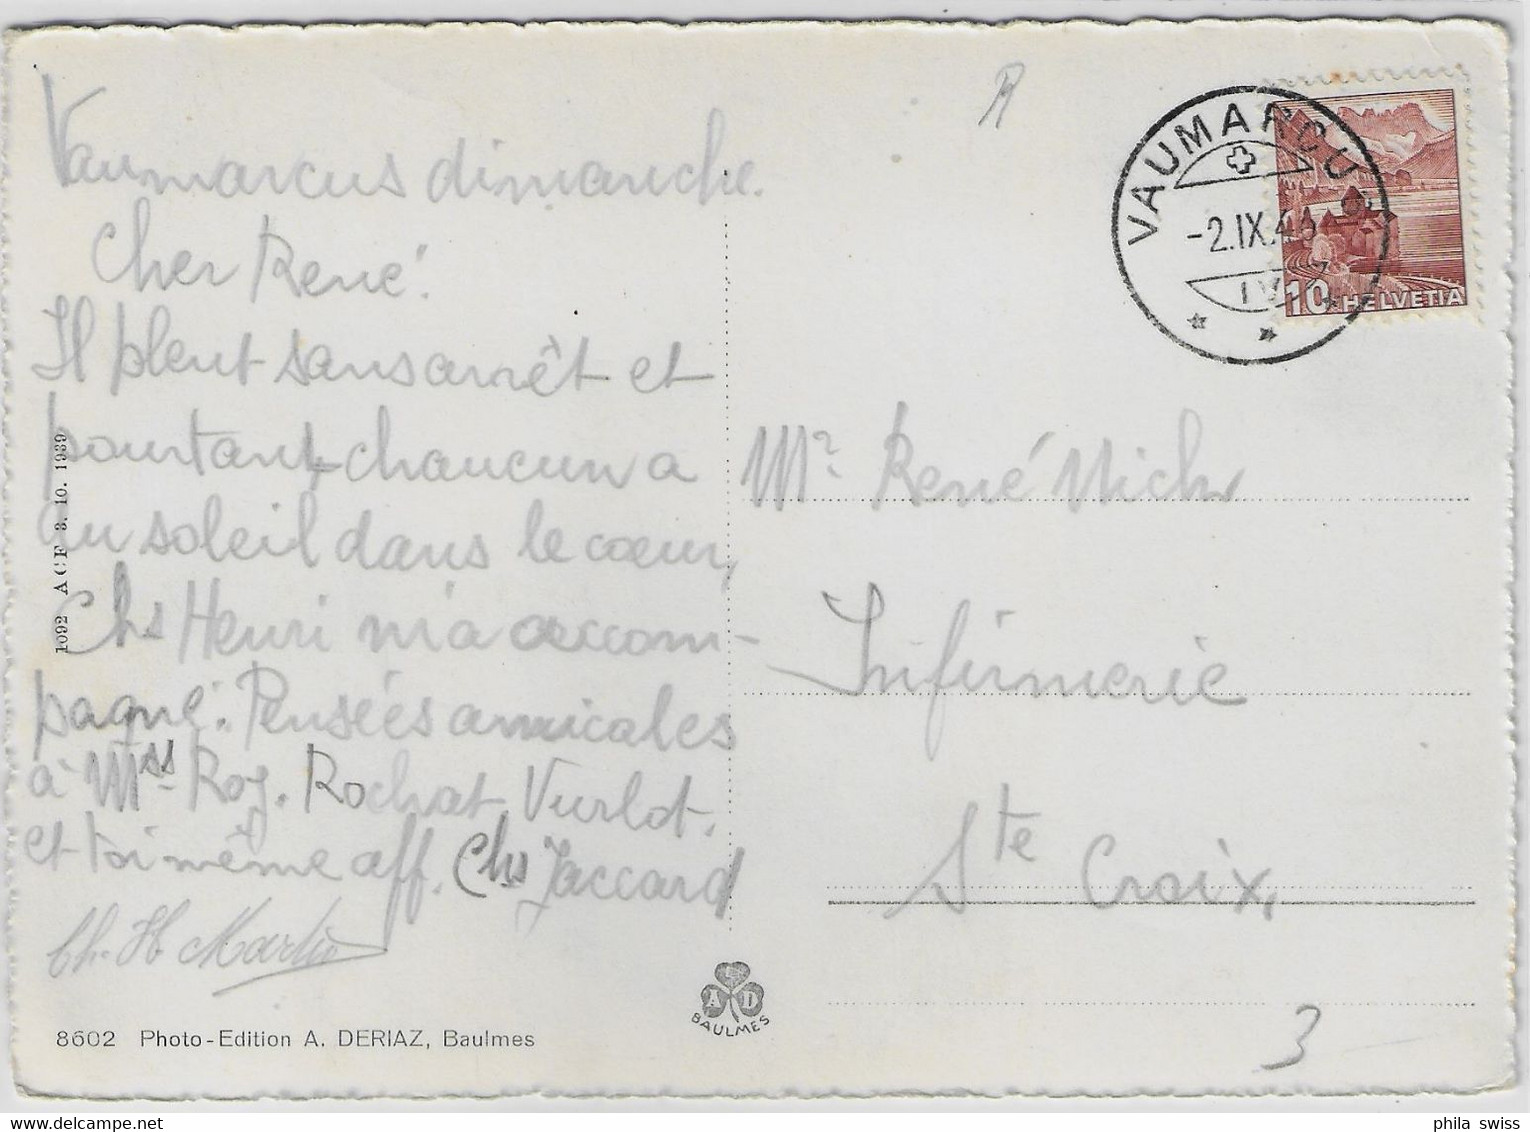 Vaumarcus dimanche.
Cher René!
Il pleut sans arrêt et
pourtant chaucun a
du soleil dans le coeur,
Chs Henri m'a accom-
pagné. Pensées amicales
à Mss. Roy. Rochat, Vurlot.
et toi même aff. Chs Jaccard
Ch. H. Martin
1092 ACF 3. 10. 1939
8602 Photo-Edition A. DERIAZ, Baulmes
L
A D
BAULMES
R
VAUMARCUS
-2.IX.46
10 HELVETIA
Mr. René
Infirmerie
Ste Croix,
3
phila swiss